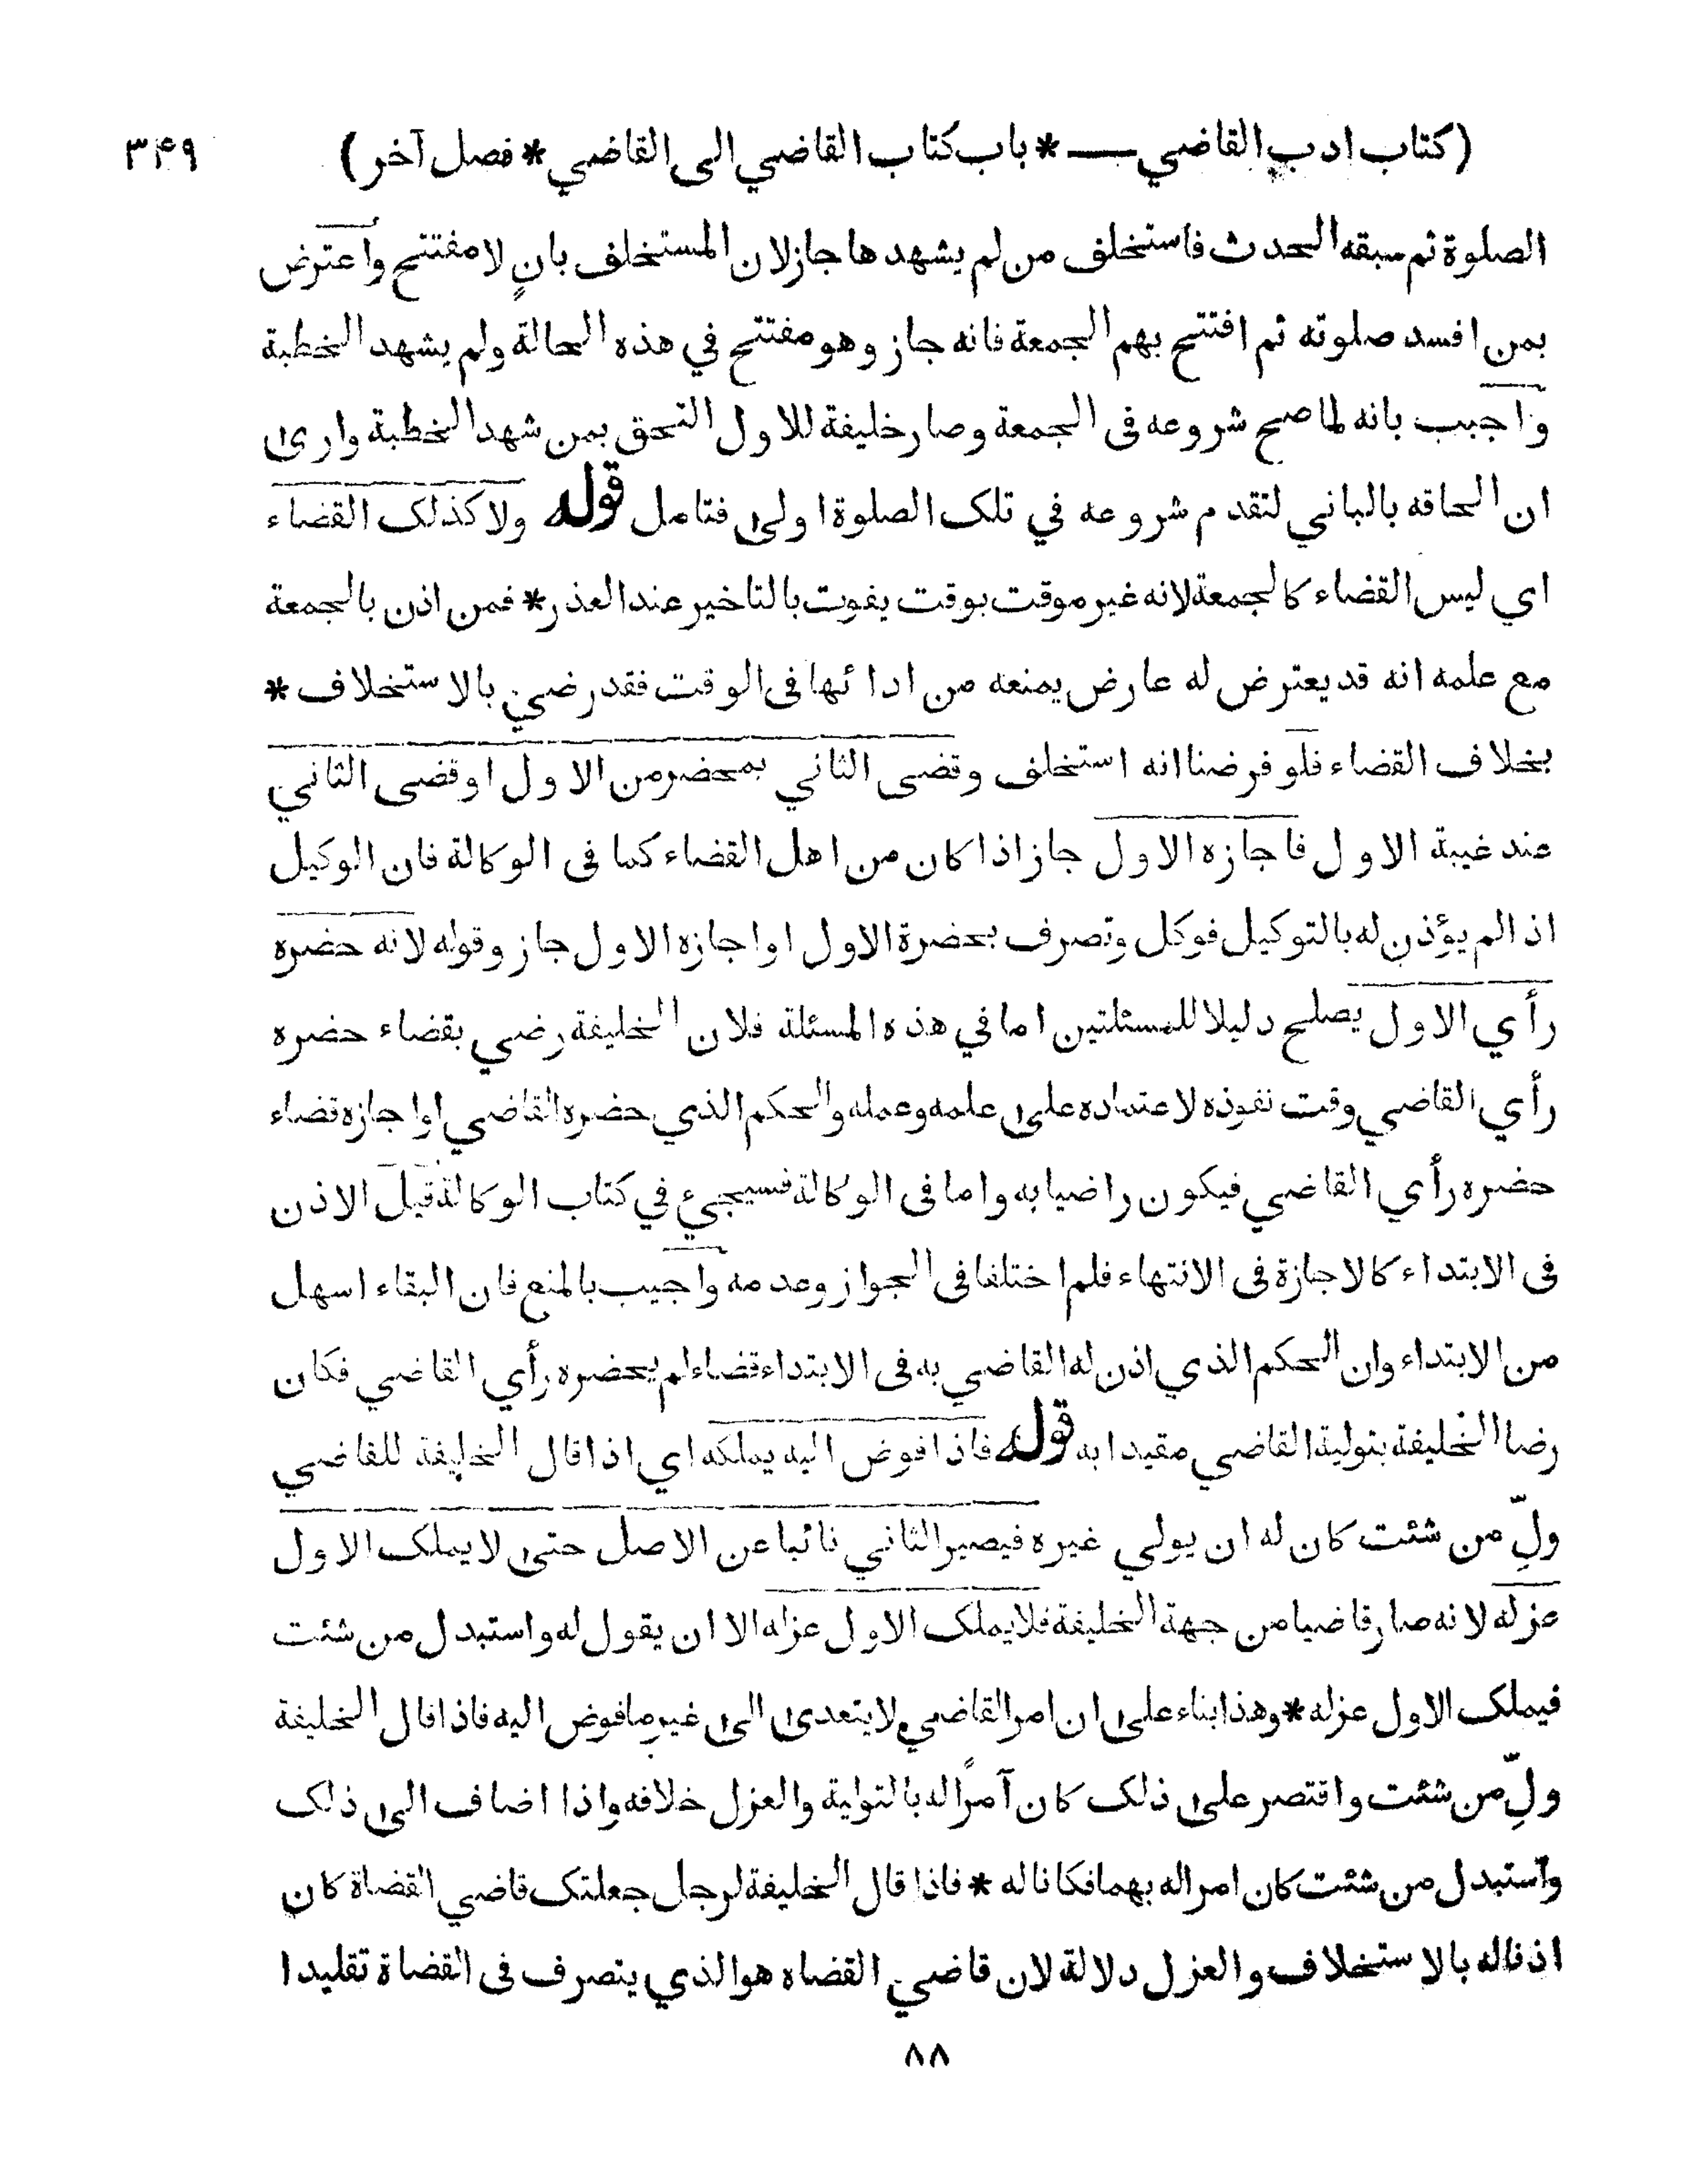 (كتاب ادب القاضي — * باب كتاب القاضي الى القاضي * فصل آخر) ۳۴۹
الصلوة ثم سبقه الحدث فاستخلف من لم يشهدها جاز لان المستخلف بانٍ لا مفتتح واعترض
بمن افسد صلوته ثم افتتح بهم الجمعة فانه جاز وهو مفتتح في هذه الحالة ولم يشهد الخطبة
واجيب بانه لما صح شروعه فى الجمعة وصار خليفة للاول التحق بمن شهد الخطبة وارىٰ
ان الحاقه بالباني لتقدم شروعه في تلك الصلوة اولىٰ فتامل قوله ولا كذلك القضاء
اي ليس القضاء كالجمعة لانه غير موقت بوقت يفوت بالتاخير عند العذر * فمن اذن بالجمعة
مع علمه انه قد يعترض له عارض يمنعه من ادائها فى الوقت فقد رضي بالاستخلاف *
بخلاف القضاء فلو فرضنا انه استخلف وقضى الثاني بمحضر من الاول او قضى الثاني
عند غيبة الاول فاجازه الاول جاز اذا كان من اهل القضاء كما فى الوكالة فان الوكيل
اذا لم يؤذن له بالتوكيل فوكل وتصرف بحضرة الاول او اجازه الاول جاز وقوله لانه حضره
رأي الاول يصلح دليلا للمسئلتين اما في هذه المسئلة فلان الخليفة رضي بقضاء حضره
رأي القاضي وقت نفوذه لاعتماده علىٰ علمه وعمله والحكم الذي حضره القاضي او اجازه قضاء
حضره رأي القاضي فيكون راضيا به واما فى الوكالة فسيجيء في كتاب الوكالة قيل الاذن
فى الابتداء كالاجازة فى الانتهاء فلم اختلفا فى الجواز وعدمه واجيب بالمنع فان البقاء اسهل
من الابتداء وان الحكم الذي اذن له القاضي به فى الابتداء قضاء لم يحضره رأي القاضي فكان
رضا الخليفة بتولية القاضي مقيدا به قوله فاذا فوض اليه يملكه اي اذا قال الخليفة للقاضي
ولِّ من شئت كان له ان يولي غيره فيصير الثاني نائبا عن الاصل حتىٰ لا يملك الاول
عزله لانه صار قاضيا من جهة الخليفة فلا يملك الاول عزله الا ان يقول له واستبدل من شئت
فيملك الاول عزله * وهذا بناء علىٰ ان امر القاضي لا يتعدىٰ الىٰ غير ما فوض اليه فاذا قال الخليفة
ولِّ من شئت واقتصر علىٰ ذلك كان آمرًا له بالتولية والعزل خلافه واذا اضاف الىٰ ذلك
واستبدل من شئت كان امرا له بهما فكانا له * فاذا قال الخليفة لرجل جعلتك قاضي القضاة كان
اذنا له بالاستخلاف والعزل دلالة لان قاضي القضاه هو الذي يتصرف فى القضاة تقليدا
۸۸